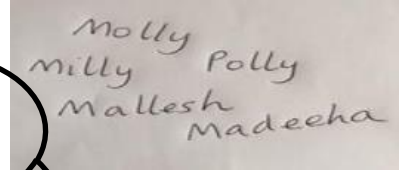 Molly
Milly Polly
Mallesh
Madeeha